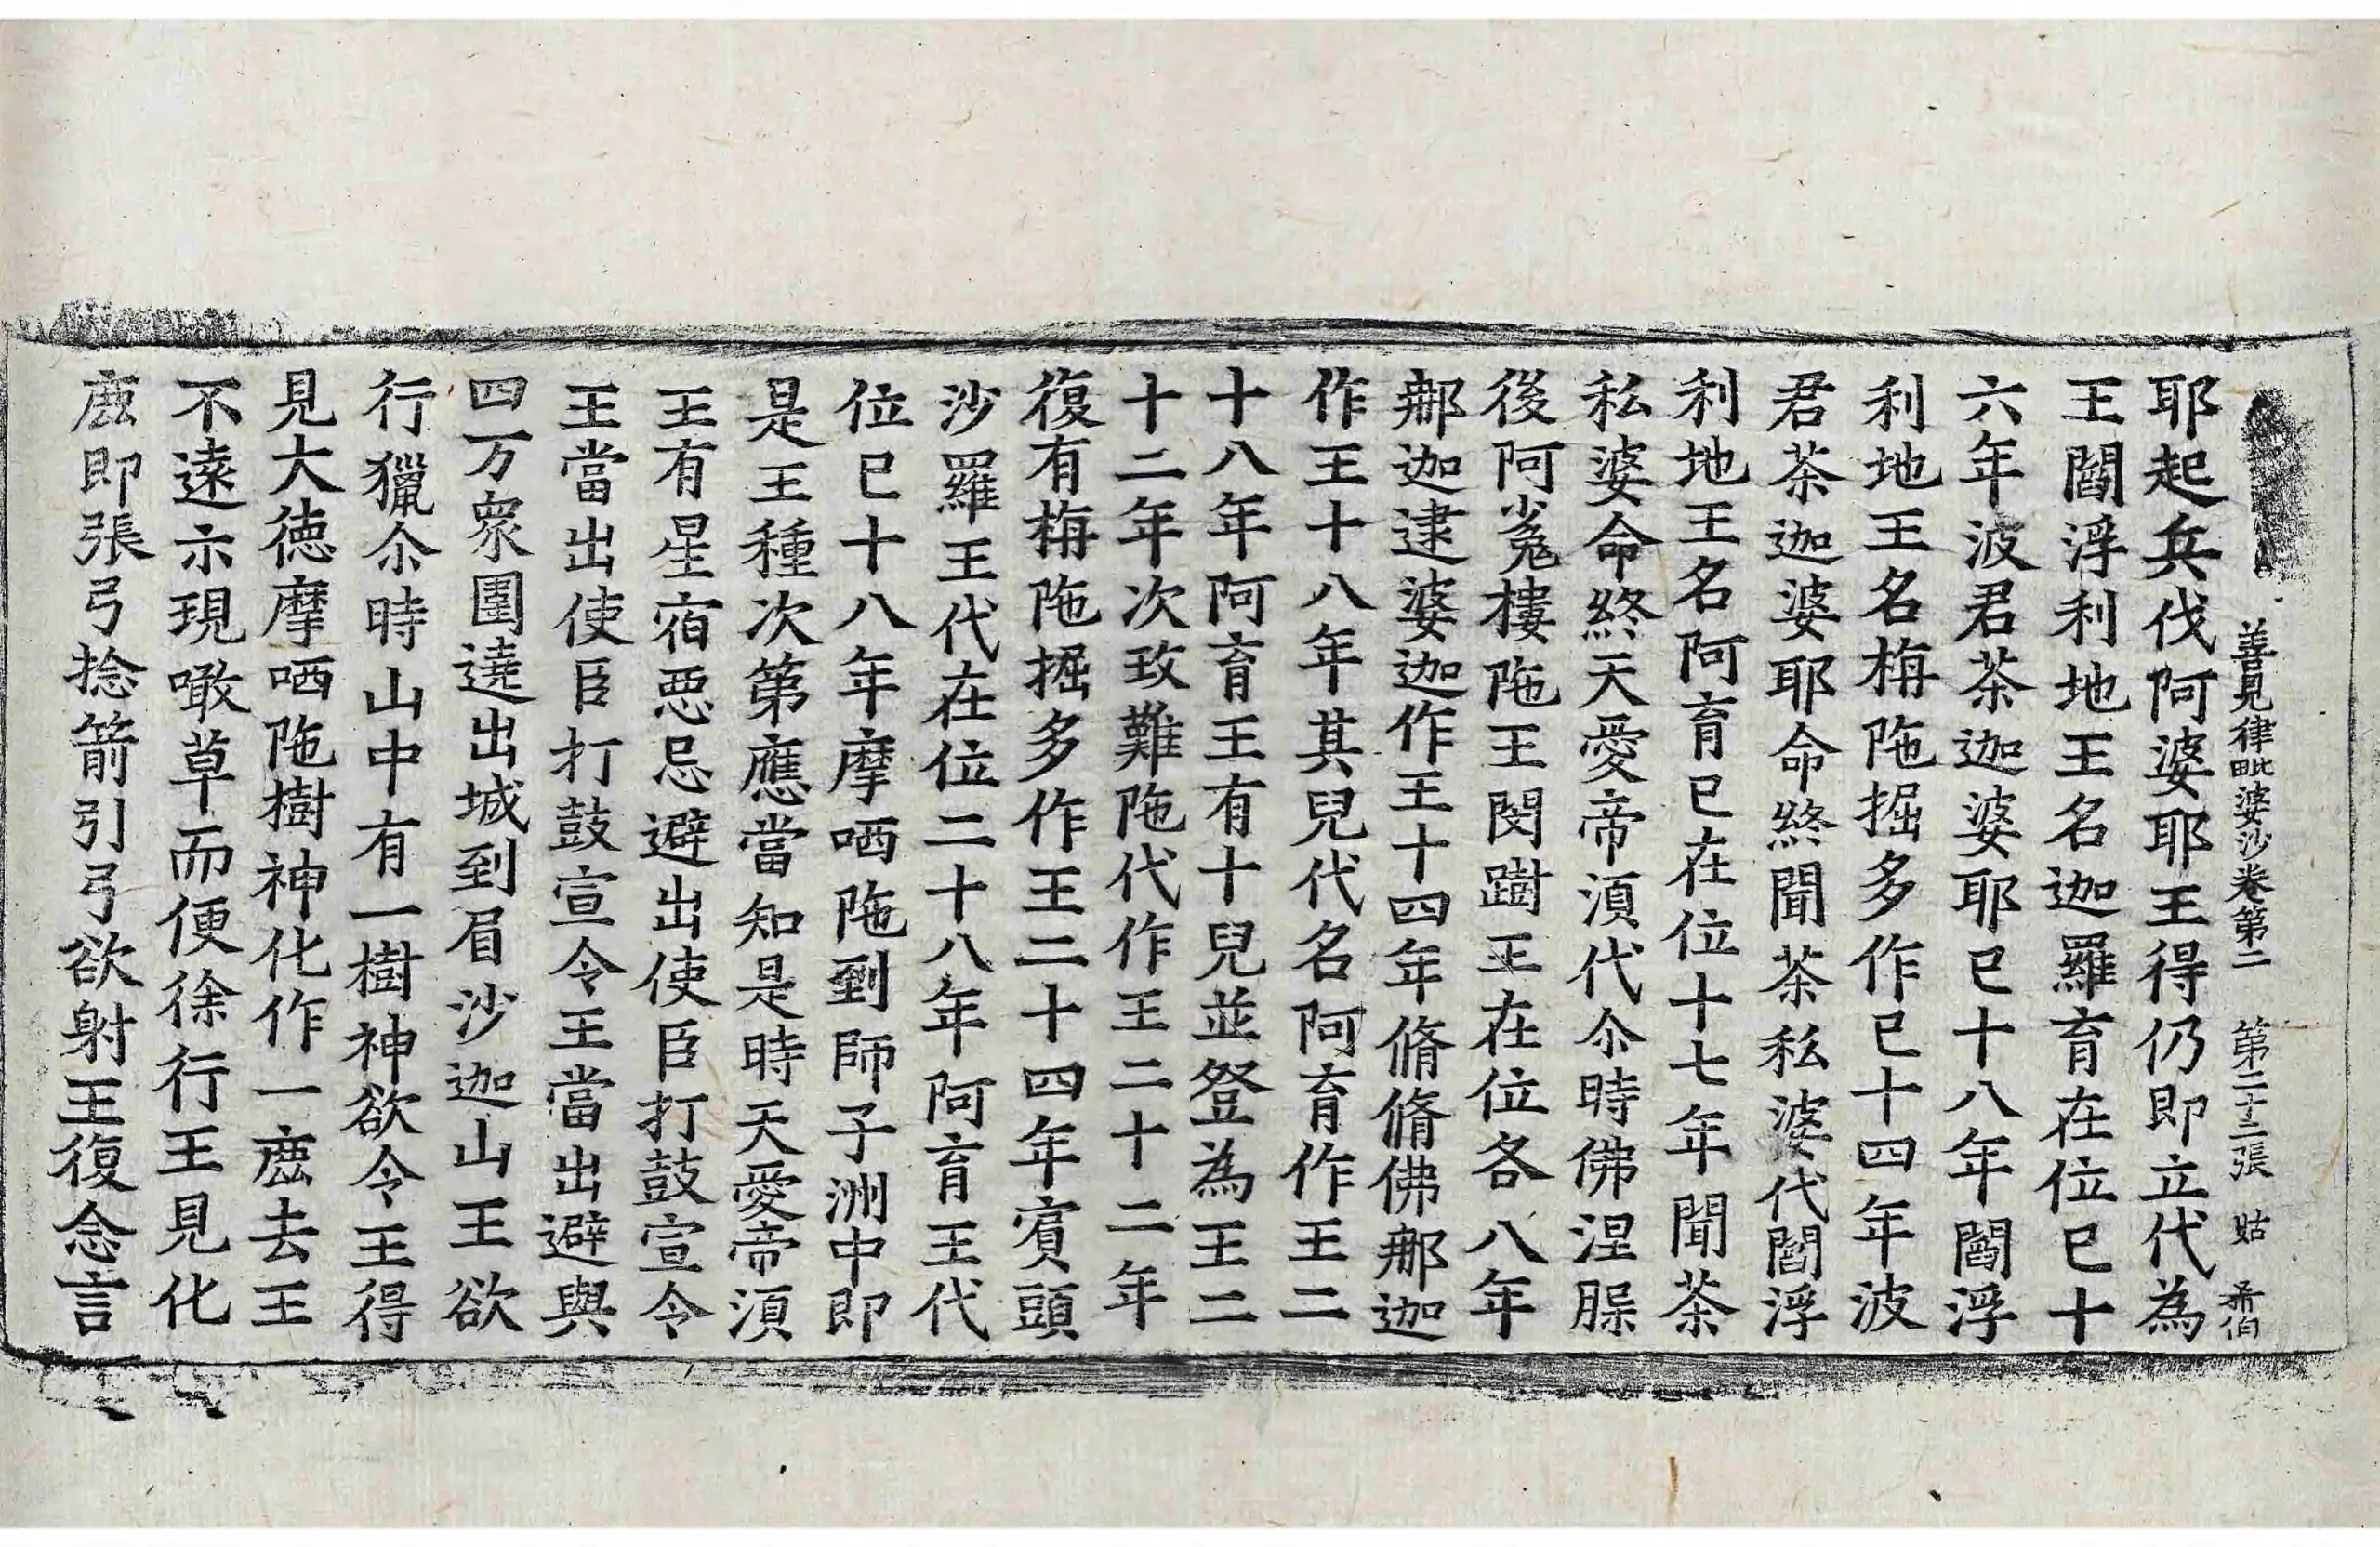 善見律毗婆沙卷第二 第二十三張 姑 希伯
耶起兵伐阿婆耶王得仍即立代為
王閻浮利地王名迦羅育在位已十
六年波君茶迦婆耶已十八年閻浮
利地王名栴陁掘多作已十四年波
君茶迦婆耶命終聞茶私婆代閻浮
利地王名阿育已在位十七年聞茶
私婆命終天愛帝湏代尒時佛涅脵
後阿㝹樓陁王閔蹰王在位各八年
那迦逮婆迦作王十四年脩脩佛那迦
作王十八年其兒代名阿育作王二
十八年阿育王有十兒並登為王二
十二年次玫難陁代作王二十二年
復有栴陁掘多作王二十四年賔頭
沙羅王代在位二十八年阿育王代
位已十八年摩哂陁到師子洲中即
是王種次第應當知是時天愛帝湏
王有星宿惡忌避出使臣打鼓宣令
王當出使臣打鼓宣令王當出避與
四万衆圍遶出城到眉沙迦山王欲
行獵尒時山中有一樹神欲令王得
見大德摩哂陁樹神化作一麁去王
不遠示現噉草而便徐行王見化
麁即張弓捻箭引弓欲射王復念言